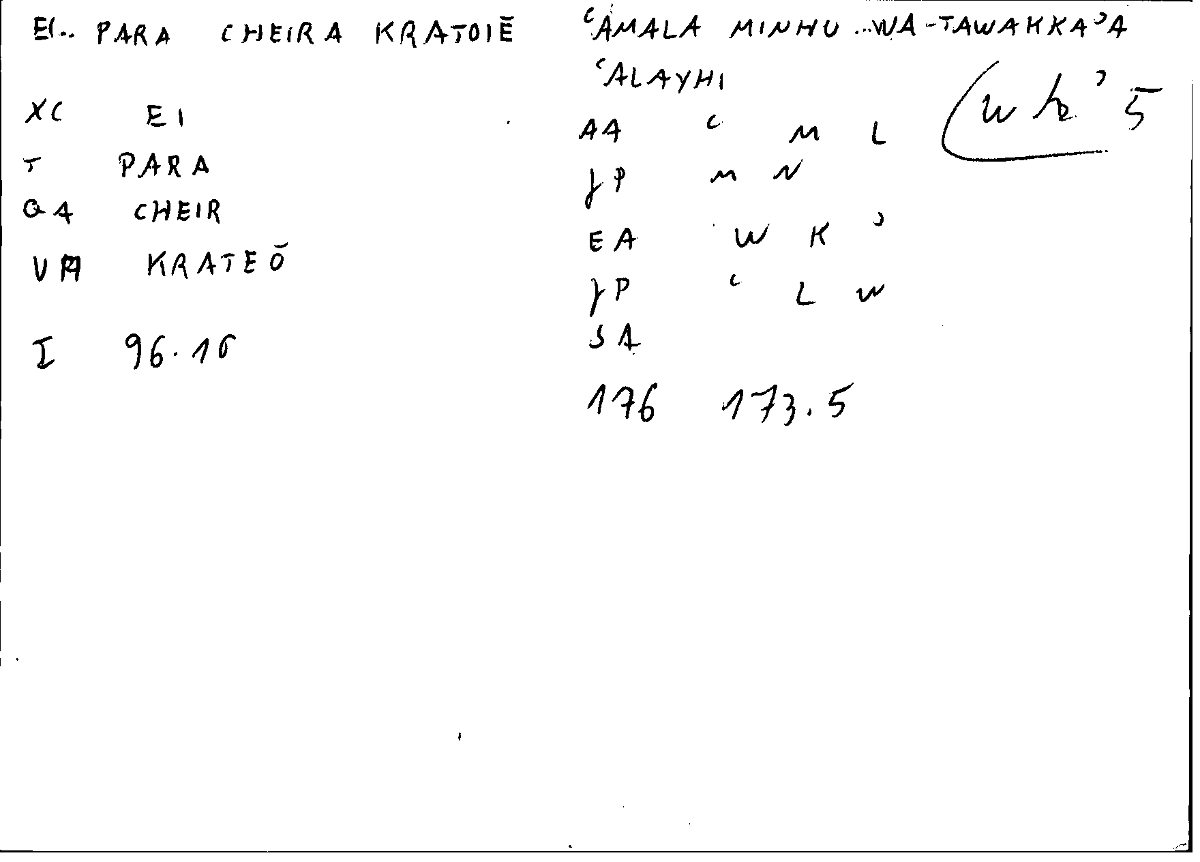 EI.. PARA CHEIRA KRATOIĒ
XC EI
T PARA
QA CHEIR
KRATEŌ
I 96.16
ʿAMALA MINHU ..WA-TAWAKKAʾA
ʿALAYHI
AA ʿ M L
JP M N
EA W K ʾ
JP ʿ L W
SA
176 173.5
wkʾ 5